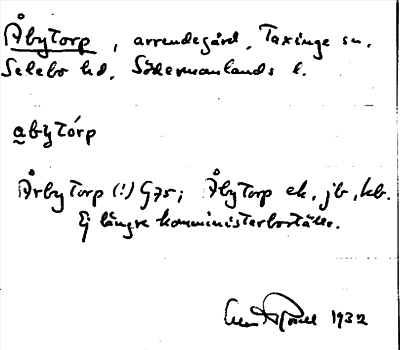 Åbytorp, arrendegård, Taxinge sn.
Selebo hd, Södermanlands l.
abytórp
Årbytorp (!) G75; Åbytorp ek, jb, kb.
Ej längre komministerboställe.
1932